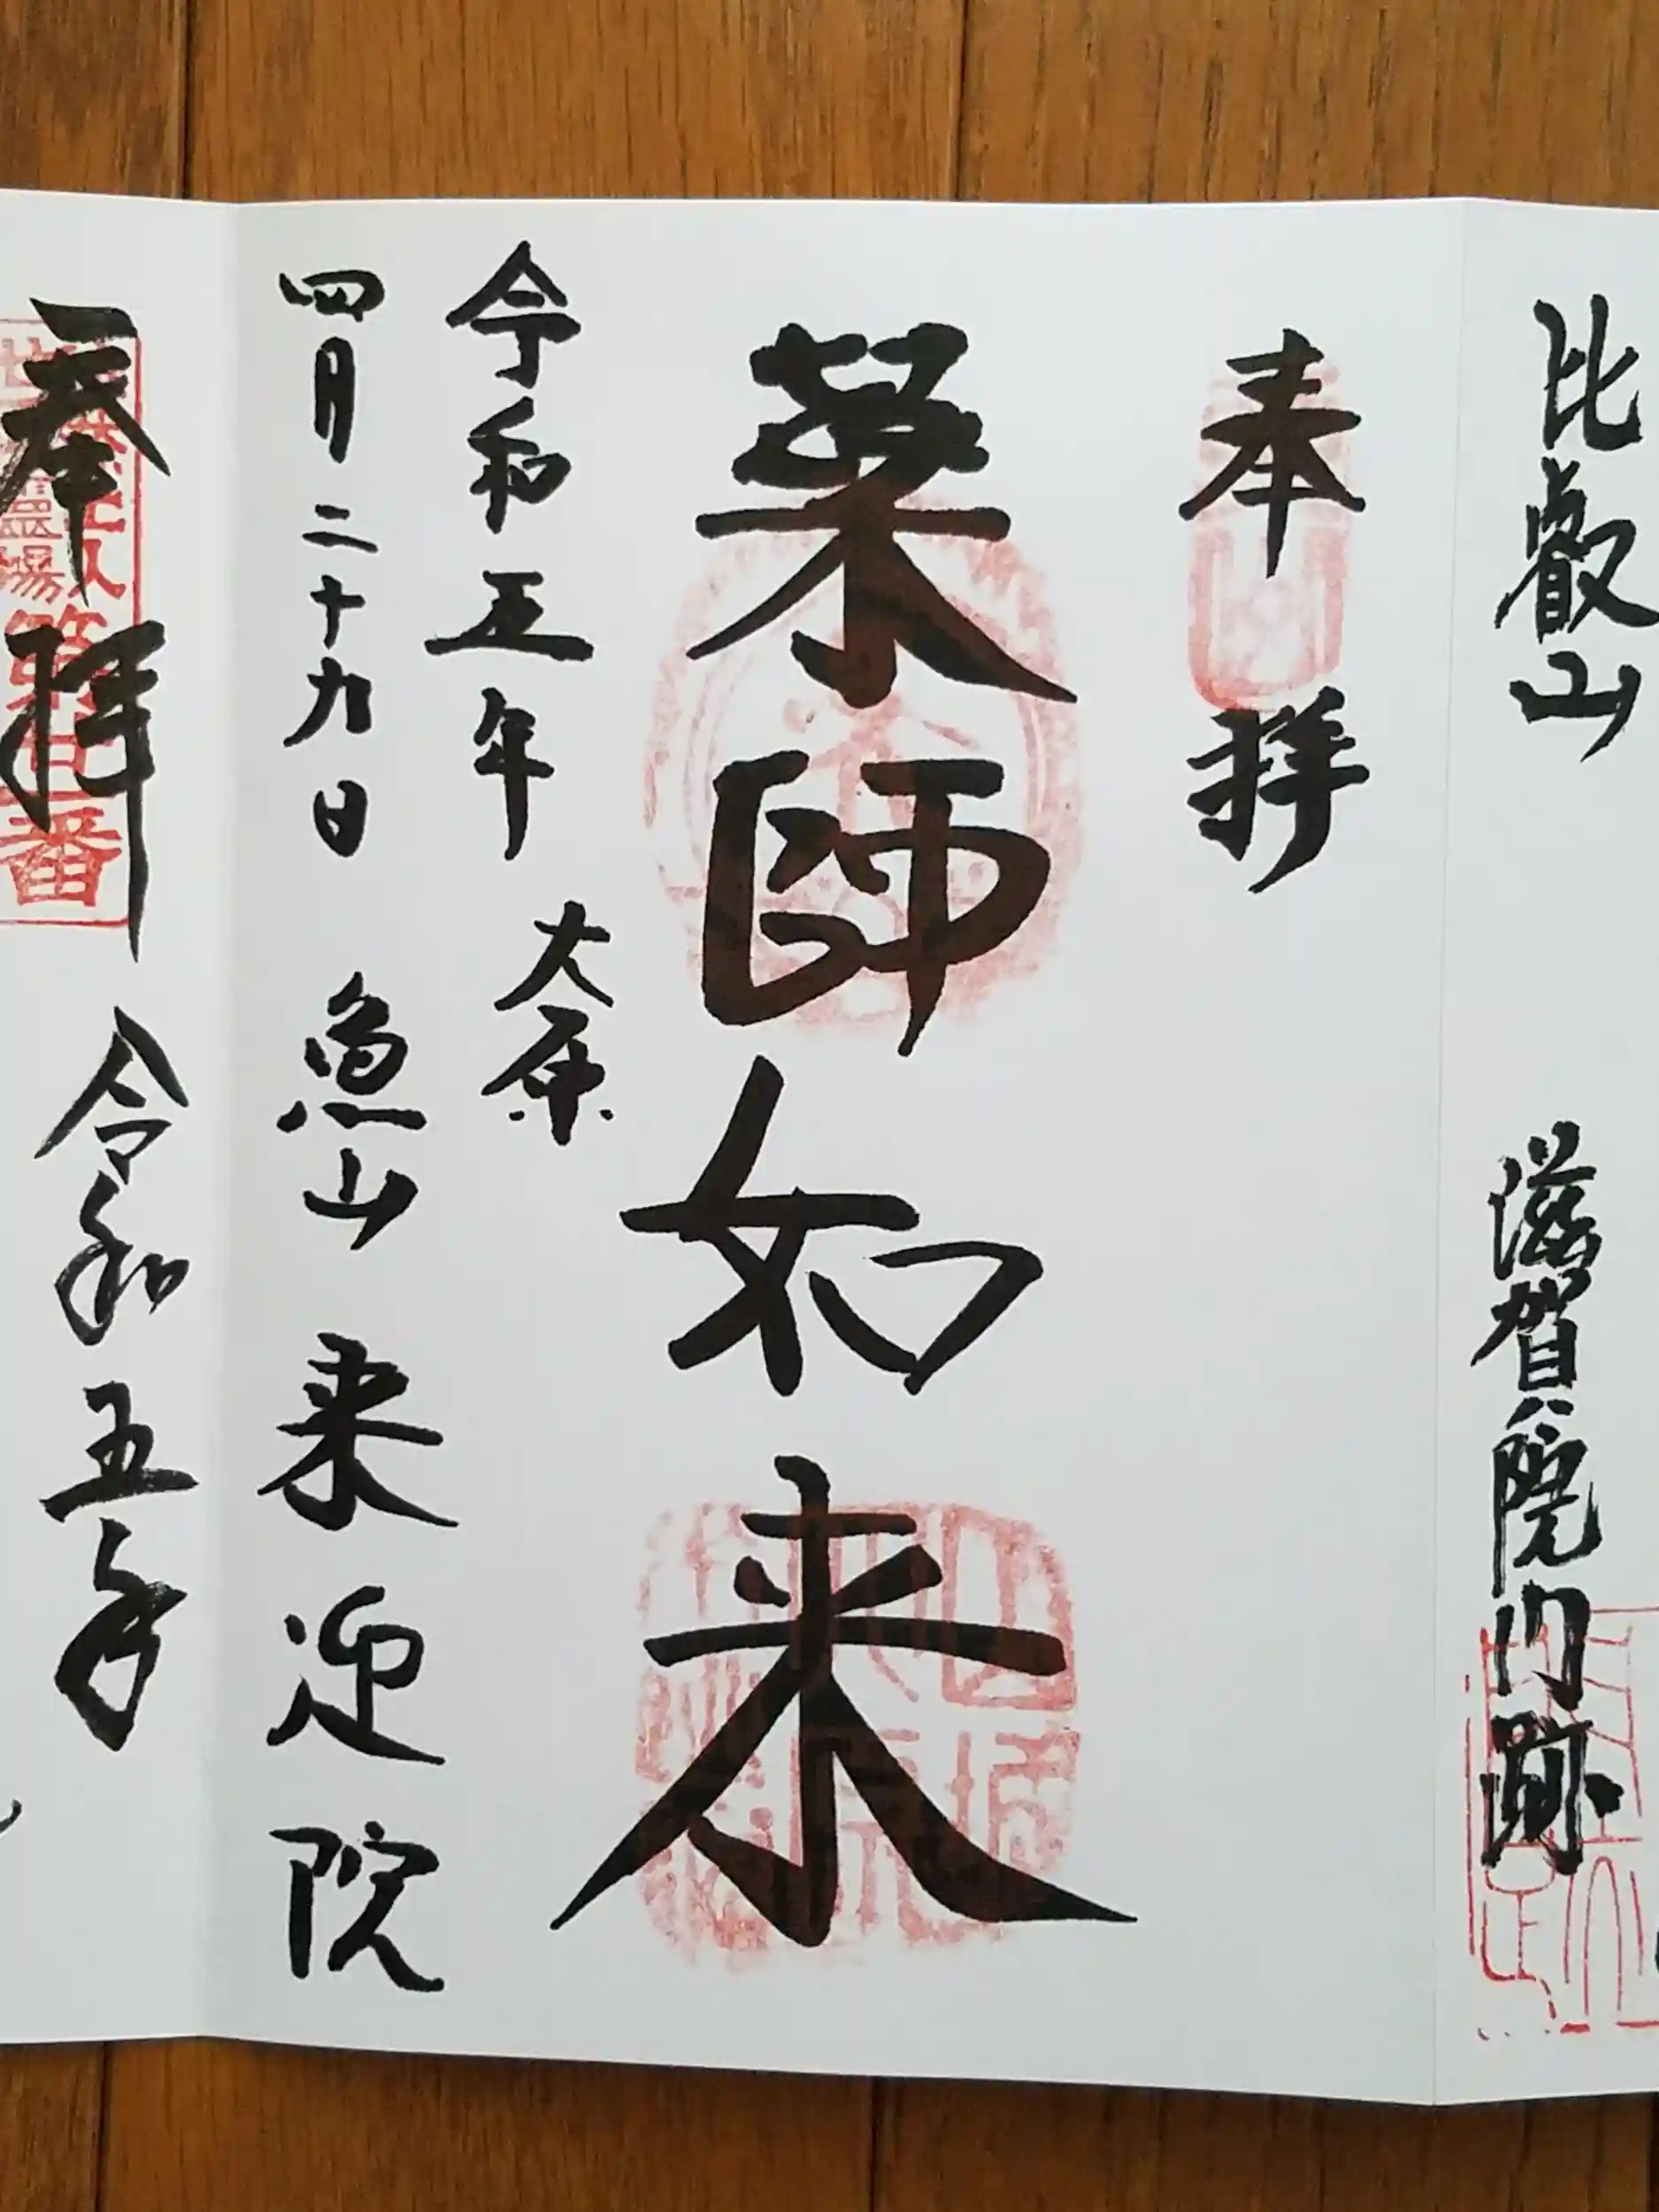 比叡山 滋賀院門跡
奉拝
薬師如来
令和五年 大原
四月二十九日 魚山 来迎院
奉拝 令和五年
番